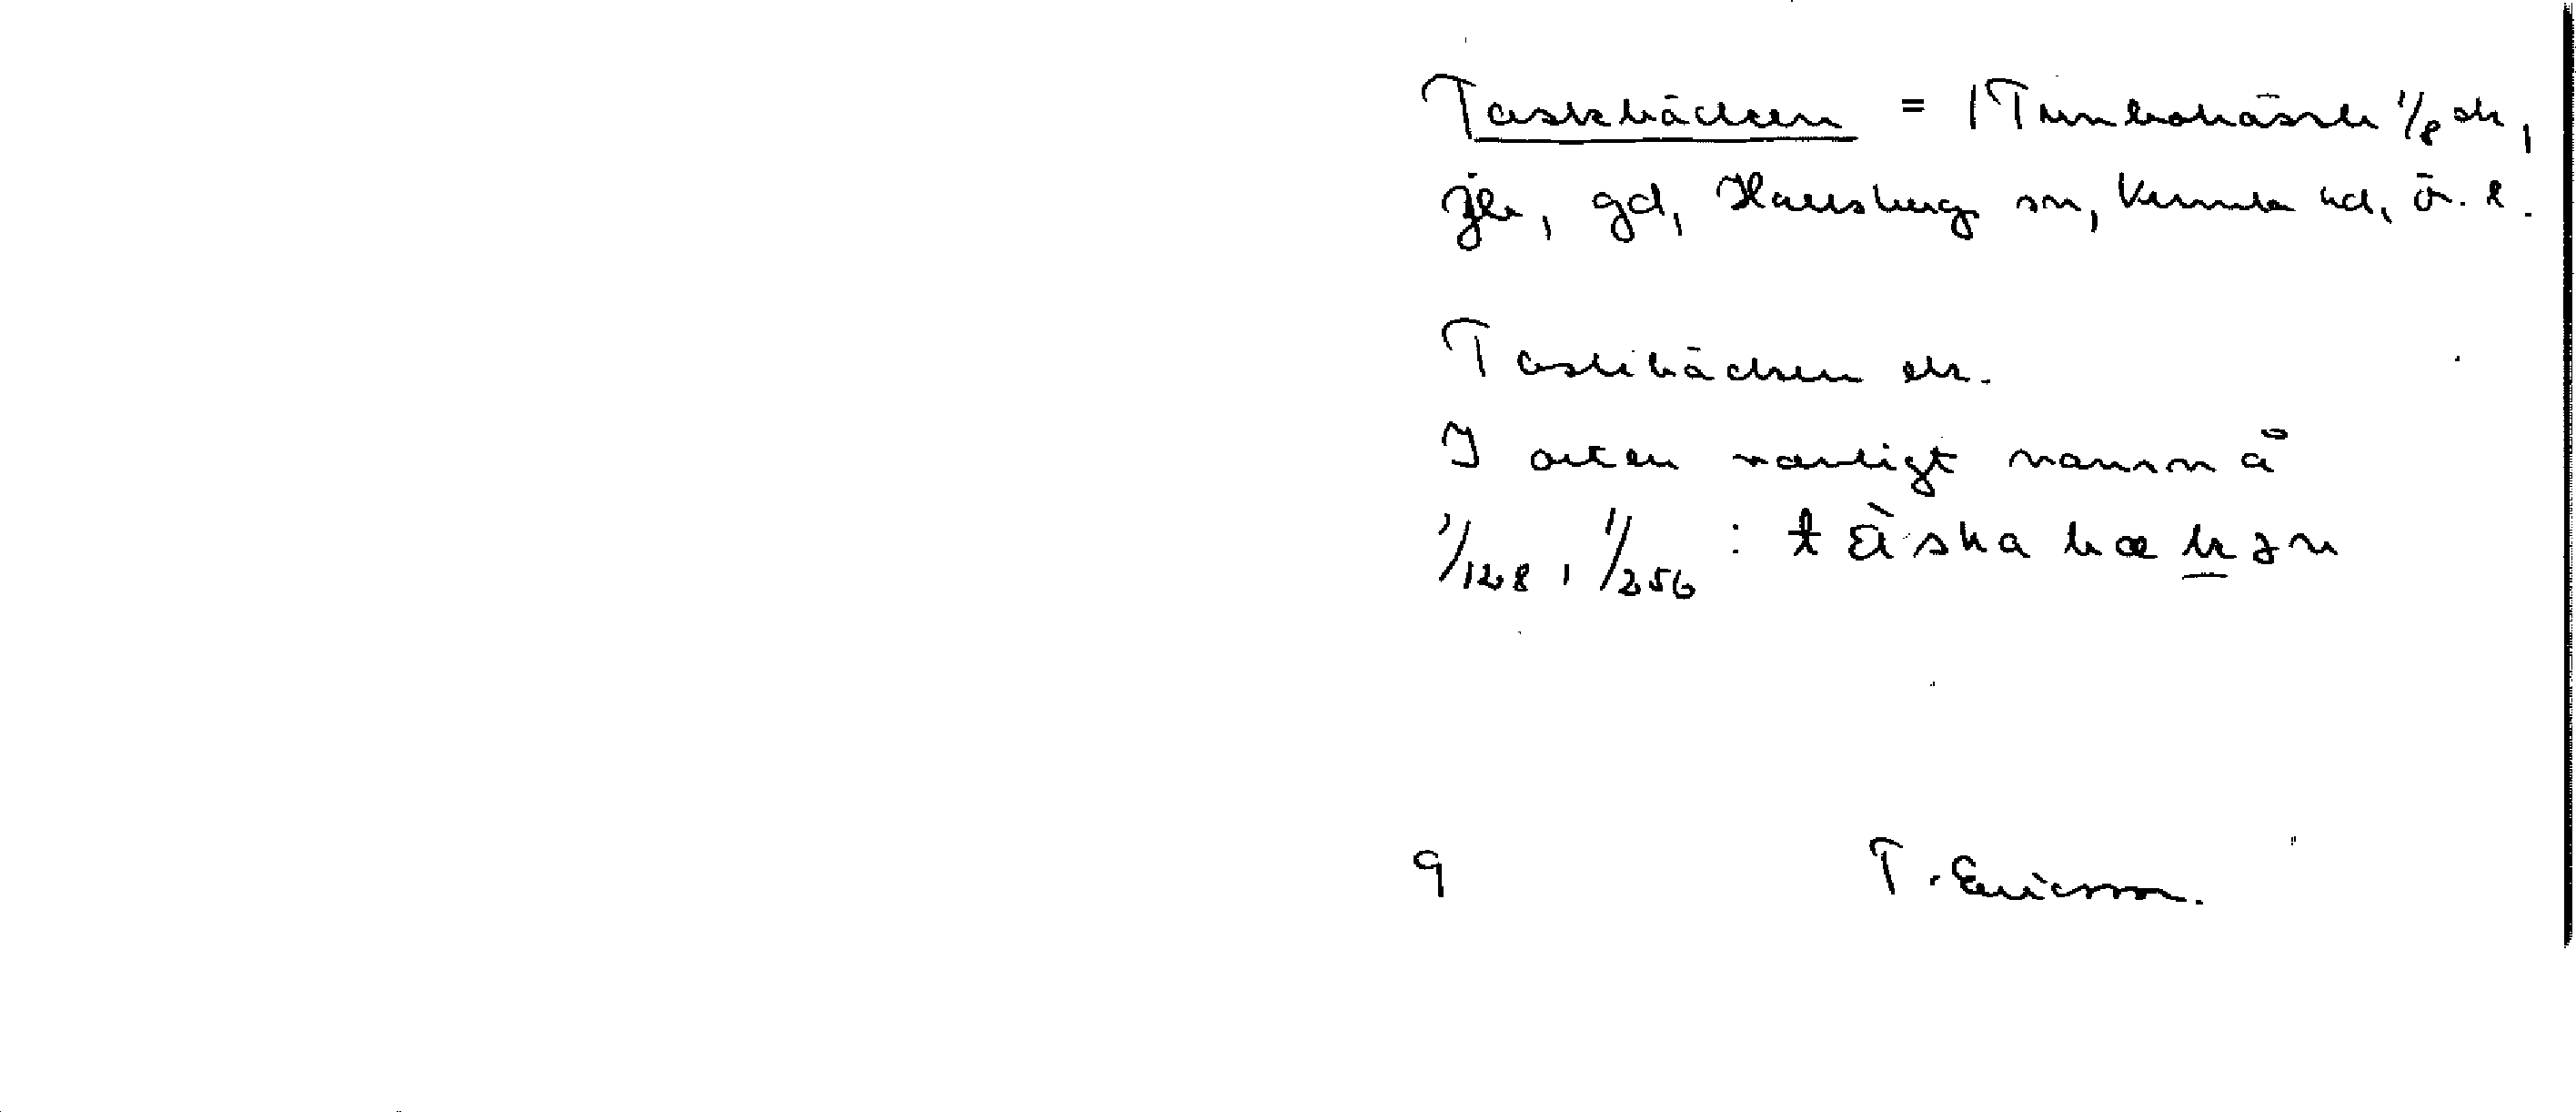 Taskbäcken = | Tunbohässle 1/8 sk,
jlr, gd, Hallsberg sn, Kumla hd, ö. l.
Taskbäcken sk.
I orten vanligt namn å
1/128, 1/256 : tàska bækən
9 T. Ericsson.